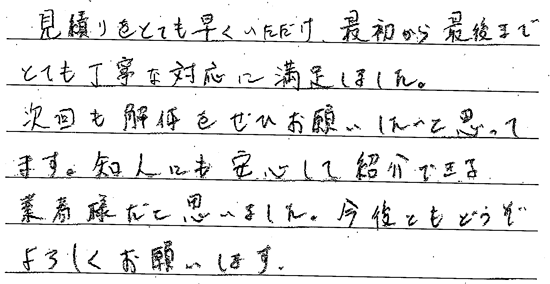 見積りをとても早くいただけ、最初から最後まで
とても丁寧な対応に満足しました。
次回も解体をぜひお願いしたいと思って
ます。知人にも安心して紹介できる
業者様だと思いました。今後ともどうぞ
よろしくお願いします。